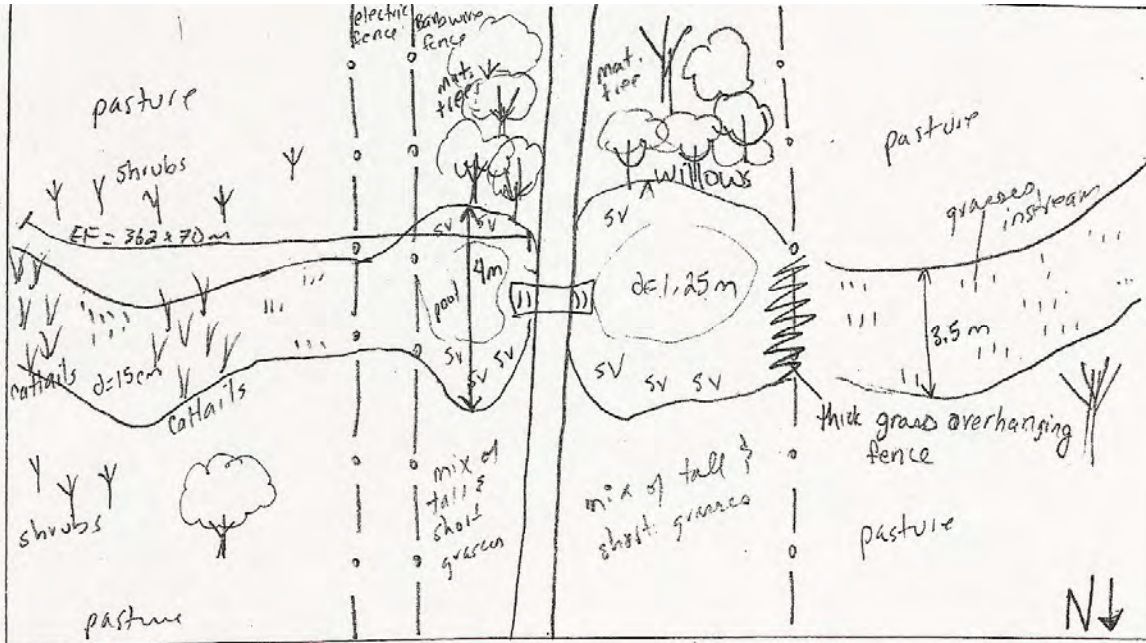 electric
fence
Barbwire
fence
mat.
trees
mat.
tree
pasture
pasture
shrubs
willows
grasses
instream
EF = 362 x 70 m
SV
SV
SV
pool
4m
d=1.25m
3.5 m
cattails
d=15cm
cattails
SV
SV
SV
SV
SV
SV
thick grass overhanging
fence
shrubs
mix of
tall &
short
grasses
mix of tall &
short grasses
pasture
pasture
N